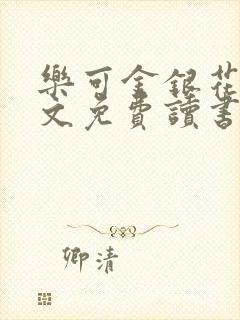 樂可金銀花
文免費讀書
卿清